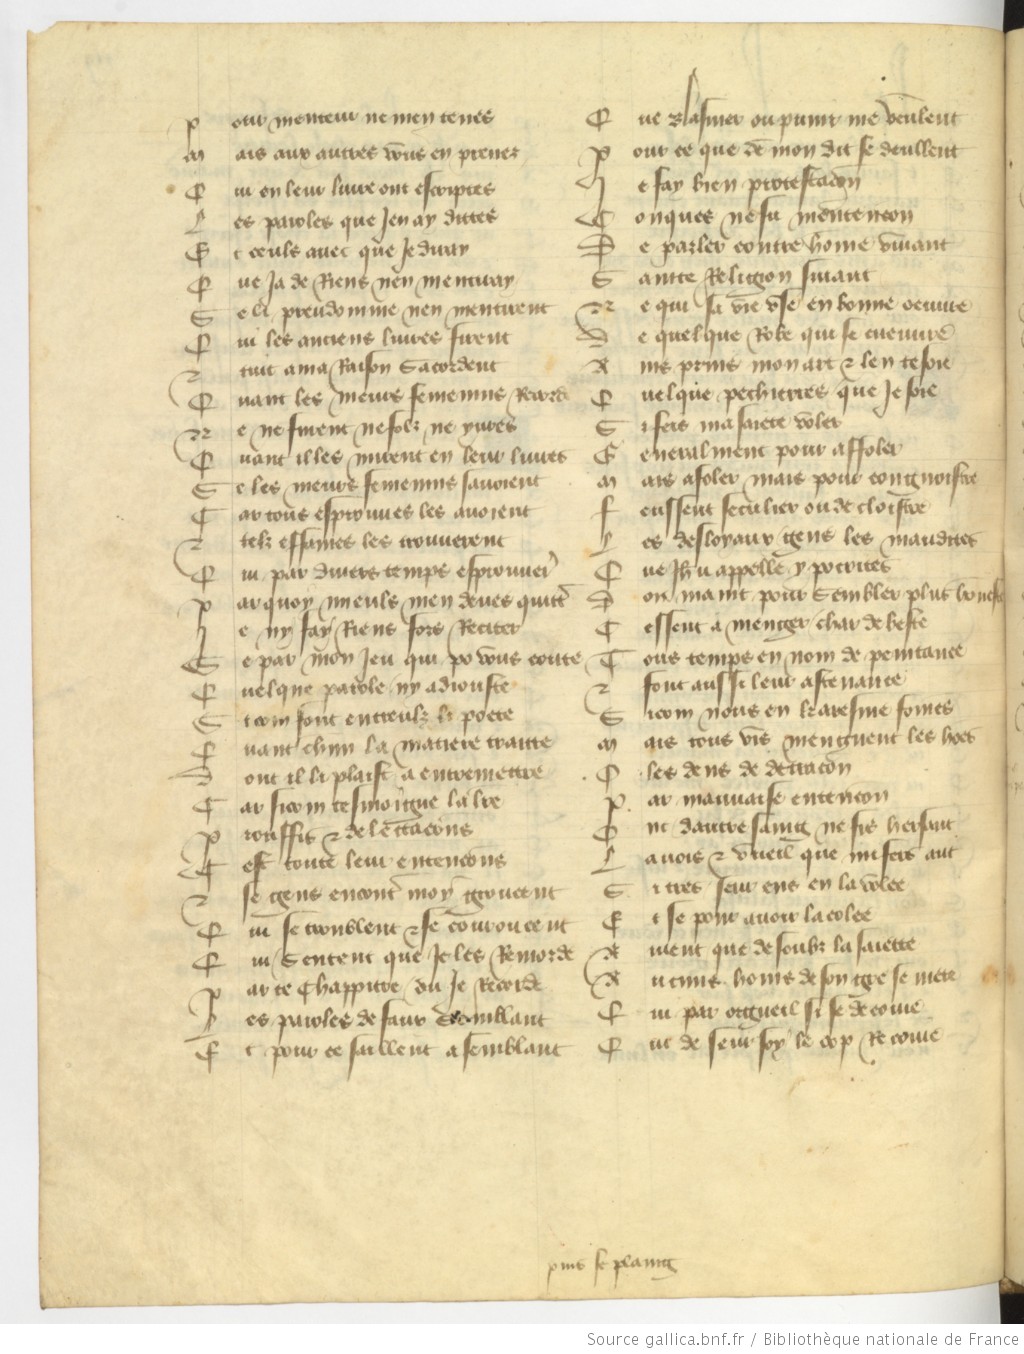 P our menteur ne men tenes
M ais aux autres vous en prenez
Q ui en leur livre ont escriptes
L es paroles que Jen ay dittes
E t ceuls avec que Je diray
Q ue Ja de Riens nen mentiray
S e li preudomme nen mentirent
Q ui les anciens livres firent
T uit a ma Raison sacordent
Q uant les meurs femenins Record
N e ne furent ne folz ne yures
Q uant il les mirent en leur livres
C les meurs femenins savoient
C ar tous esprouves les avoient
T telz es fames les trouverent
Q ui par divers temps esprouver
P ar quoy mieuls men deves quitt
J e ny fay Riens fors Reciter
S e par mon Jeu qui po vous couste
Q uelque parole ny adiouste
S icom font entreulz li poete
Q uant chun la matiere traitte
D ont il li plaist a entremettre
C ar sicom tesmoigne la lre
P rouffis et delectacons
C est toute leur entencons
S e gens encont moy groucent
Q ui se troublent et se courroucent
Q ui Sentent que Je les Remorde
P ar ce Chappitre ou Je Recorde
L es paroles de faux Semblant
E t pour ce saillent a semblant
Q ue Blasmer ou punir me veulent
P our ce que de mon dit se deullent
J e fay bien protestacon
C onques ne fu mentencon
D e parler contre home vivant
S ainte Religion suivant
N e qui sa vie use en bonne oeuvre
D e quelque Robe qui se cueuvre
A ins prins mon arc et len tesoie
Q uelque pechierres que Je soie
S i feis ma saiete voler
G eneralment pour affoler
M ais afoler mais pour congnoistre
F eussent seculier ou de cloistre
L es desloyaux gens les maudites
Q ue Jhu appelle ypocrites
D ont maint pour Sembler plus honeste
C essent a menger char de beste
T ous temps en nom de penitance
E font aussi leur astenance
S icom nous en karesme fomes
M ais tous vis menguent les hoes
O les dens de detracon
P ar mauvaise entencon
O nc dautre saing ne fis bersant
L a vois et vueil que mi fers aut
S i tres seur ens en la volee
E t se pour avoir la colee
A vient que desoubz la saiette
A ucuns homs de son gre se mete
Q ui par orgueil si se decoive
Q ue de seur soy le cop Recoive
puis se plaing
Source gallica.bnf.fr / Bibliothèque nationale de France